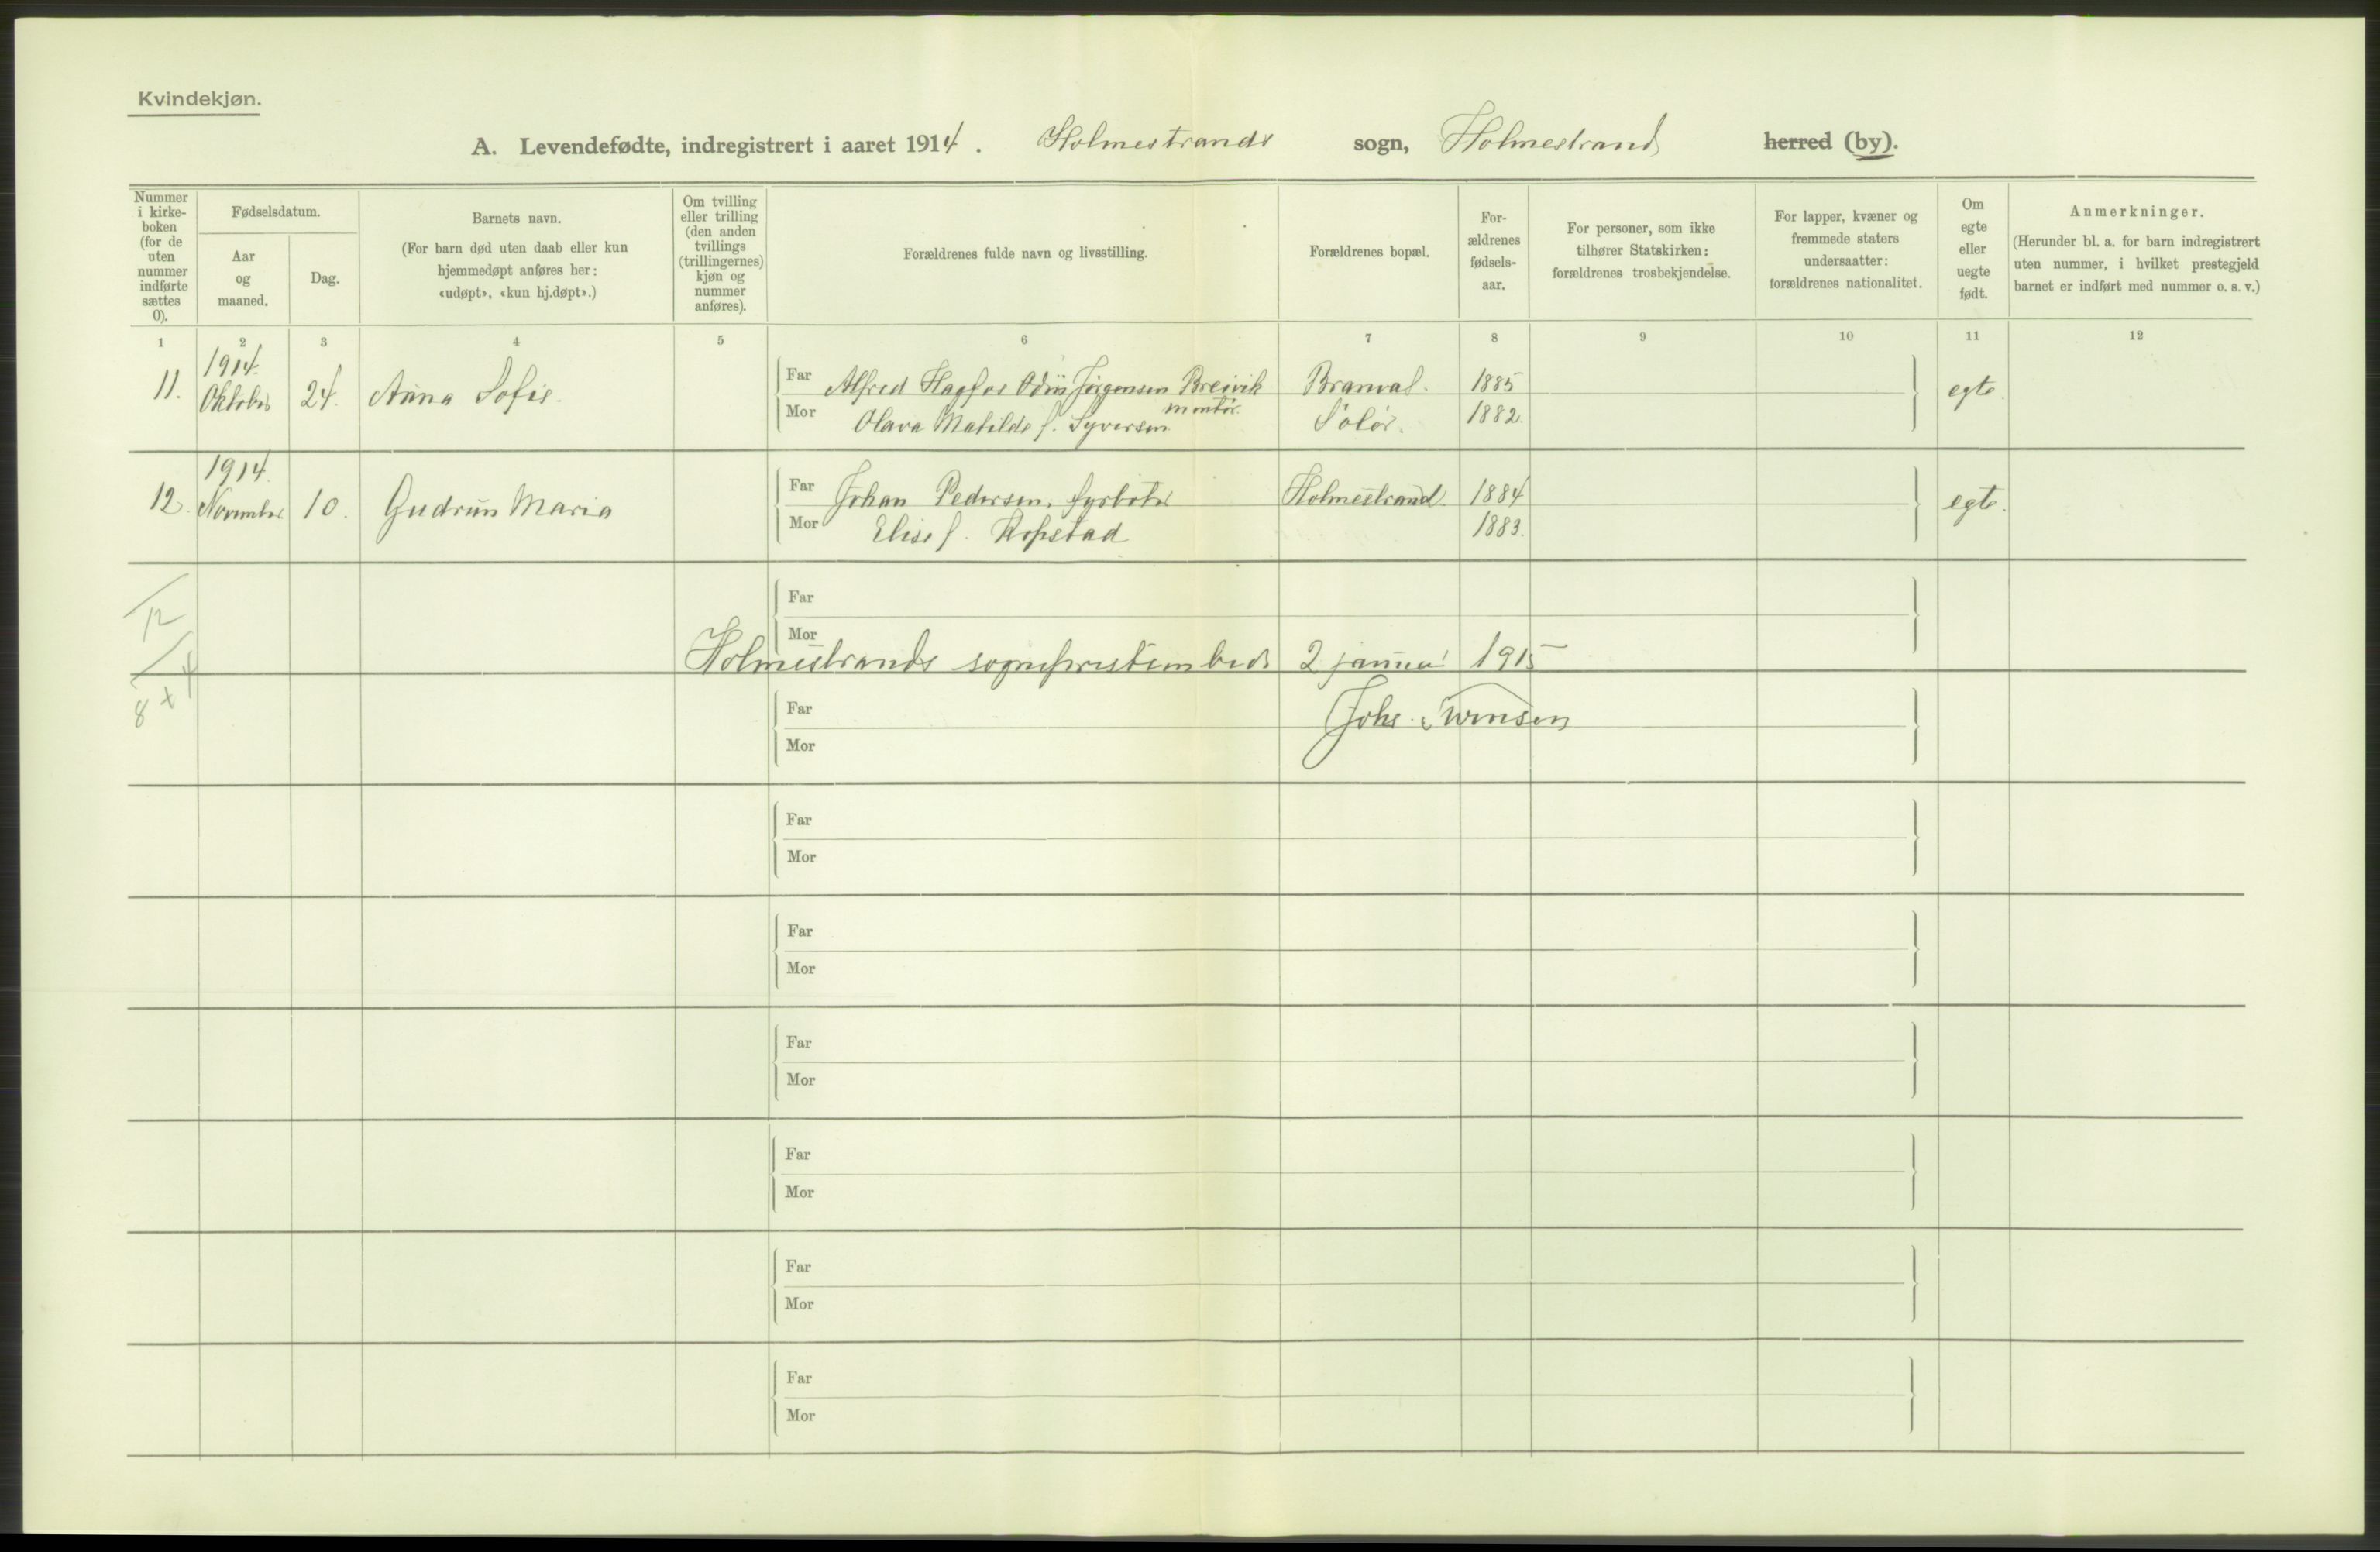 Kvindekjøn.
A. Levendefødte, indregistrert i aaret 1914. Holmestrands sogn, Holmestrand herred (by).
Nummer i kirke-boken (for de uten nummer indførte sættes 0).
Fødselsdatum.
Aar og maaned.
Dag.
Barnets navn.
(For barn død uten daab eller kun hjemmedøpt anføres her: «udøpt», «kun hj.døpt».)
Om tvilling eller trilling (den anden tvillings (trillingernes) kjøn og nummer anføres).
Forældrenes fulde navn og livsstilling.
Forældrenes bopæl.
For-ældrenes fødsels-aar.
For personer, som ikke tilhører Statskirken: forældrenes trosbekjendelse.
For lapper, kvæner og fremmede staters undersaatter: forældrenes nationalitet.
Om egte eller uegte født.
Anmerkninger.
(Herunder bl. a. for barn indregistrert uten nummer, i hvilket prestegjeld barnet er indført med nummer o. s. v.)
1 2 3 4 5 6 7 8 9 10 11 12
11. 1914. Oktober 24. Anna Sofie. Far Alfred Hagfos Odin Jørgensen Breivik Branval. 1885 egte.
montør.
Mor Olava Matilde f. Syversen Solør. 1882.
12. 1914. November 10. Gudrun Maria Far Johan Pedersen, fyrbøter Holmestrand. 1884 egte.
Mor Elise f. Kopstad 1883.
12
Far
Mor
Holmestrands sogneprestembede 2 januar 1915
8 + 4
Far
Johs.
Mor
Far
Mor
Far
Mor
Far
Mor
Far
Mor
Far
Mor
Far
Mor